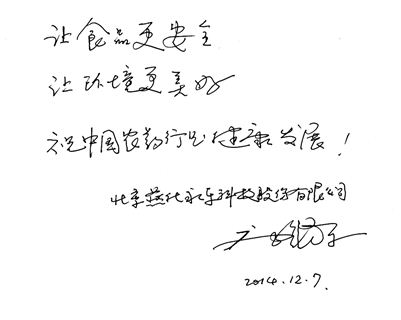 让食品更安全
让环境更美好
祝中国农药行业健康发展！
北京燕化永乐科技股份有限公司
2014.12.7.